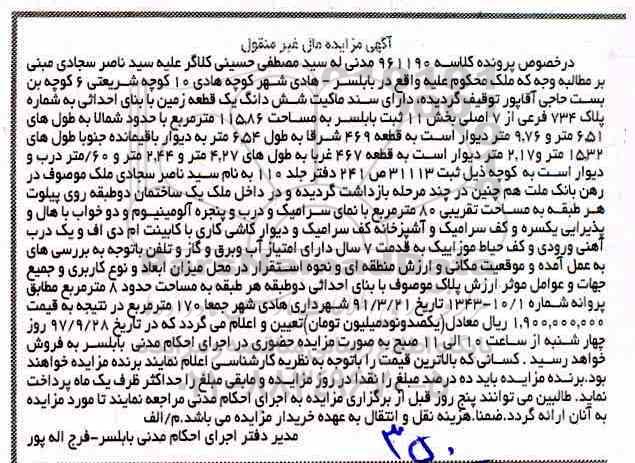 آگهی مزایده مال غیر منقول
درخصوص پرونده کلاسه ۹۶۱۱۹۰ مدنی له سید مصطفی حسینی کلاگر علیه سید ناصر سجادی مبنی
بر مطالبه وجه که ملک محکوم علیه واقع در بابلسر - هادی شهر کوچه هادی ۱۰ کوچه شریعتی ۶ کوچه بن
بست حاجی آقاپور توقیف گردیده، دارای سند مالکیت شش دانگ یک قطعه زمین با بنای احداثی به شماره
پلاک ۷۳۴ فرعی از ۷ اصلی بخش ۱۱ ثبت بابلسر به مساحت ۱۱۵٫۸۶ مترمربع با حدود شمالا به طول های
۶٫۵۱ متر و ۹٫۷۶ متر دیوار است به قطعه ۴۶۹ شرقا به طول ۶٫۵۴ متر به دیوار باقیمانده جنوبا طول های
۱۵٫۳۲ متر و۲٫۱۷ متر دیوار است به قطعه ۴۶۷ غربا به طول های ۴٫۲۷ متر و ۲٫۴۴ متر و ۶۰/متر درب و
دیوار است به کوچه ذیل ثبت ۳۱۱۱۳ ص ۲۴۱ دفتر جلد ۱۱۰ به نام سید ناصر سجادی ملک موصوف در
رهن بانک ملت هم چنین در چند مرحله بازداشت گردیده و در داخل ملک یک ساختمان دوطبقه روی پیلوت
هر طبقه به مساحت تقریبی ۸۰ مترمربع با نمای سرامیک و درب و پنجره آلومینیوم و دو خواب با هال و
پذیرایی یکسره و کف سرامیک و آشپزخانه کف سرامیک و دیوار کاشی کاری با کابینت ام دی اف و یک درب
آهنی ورودی و کف حیاط موزاییک به قدمت ۷ سال دارای امتیاز آب وبرق و گاز و تلفن باتوجه به بررسی های
به عمل آمده و موقعیت مکانی و ارزش منطقه ای و نحوه استقرار در محل میزان ابعاد و نوع کاربری و جمیع
جهات و عوامل موثر ارزش پلاک موصوف با بنای احداثی دوطبقه هر طبقه به مساحت حدود ۸ مترمربع مطابق
پروانه شماره ۱۳۴۳-۱۰/۱ تاریخ ۹۱/۳/۲۱ شهرداری هادی شهر جمعا ۱۷۰ مترمربع در نتیجه به قیمت
۱,۹۰۰,۰۰۰,۰۰۰ ریال معادل(یکصدونودمیلیون تومان)تعیین و اعلام می گردد که در تاریخ ۹۷/۹/۲۸ روز
چهار شنبه از ساعت ۱۰ الی ۱۱ صبح به صورت مزایده حضوری در اجرای احکام مدنی بابلسر به فروش
خواهد رسید . کسانی که بالاترین قیمت را باتوجه به نظریه کارشناسی اعلام نمایند برنده مزایده خواهند
بود.برنده مزایده باید ده درصد مبلغ را نقدا در روز مزایده و مابقی مبلغ را حداکثر ظرف یک ماه پرداخت
نماید. طالبین می توانند پنج روز قبل از برگزاری مزایده به اجرای احکام مدنی مراجعه نمایند تا مورد مزایده
به آنان ارائه گردد.ضمنا.هزینه نقل و انتقال به عهده خریدار مزایده می باشد.م/الف
مدیر دفتر اجرای احکام مدنی بابلسر-فرج اله پور
۳۵۰